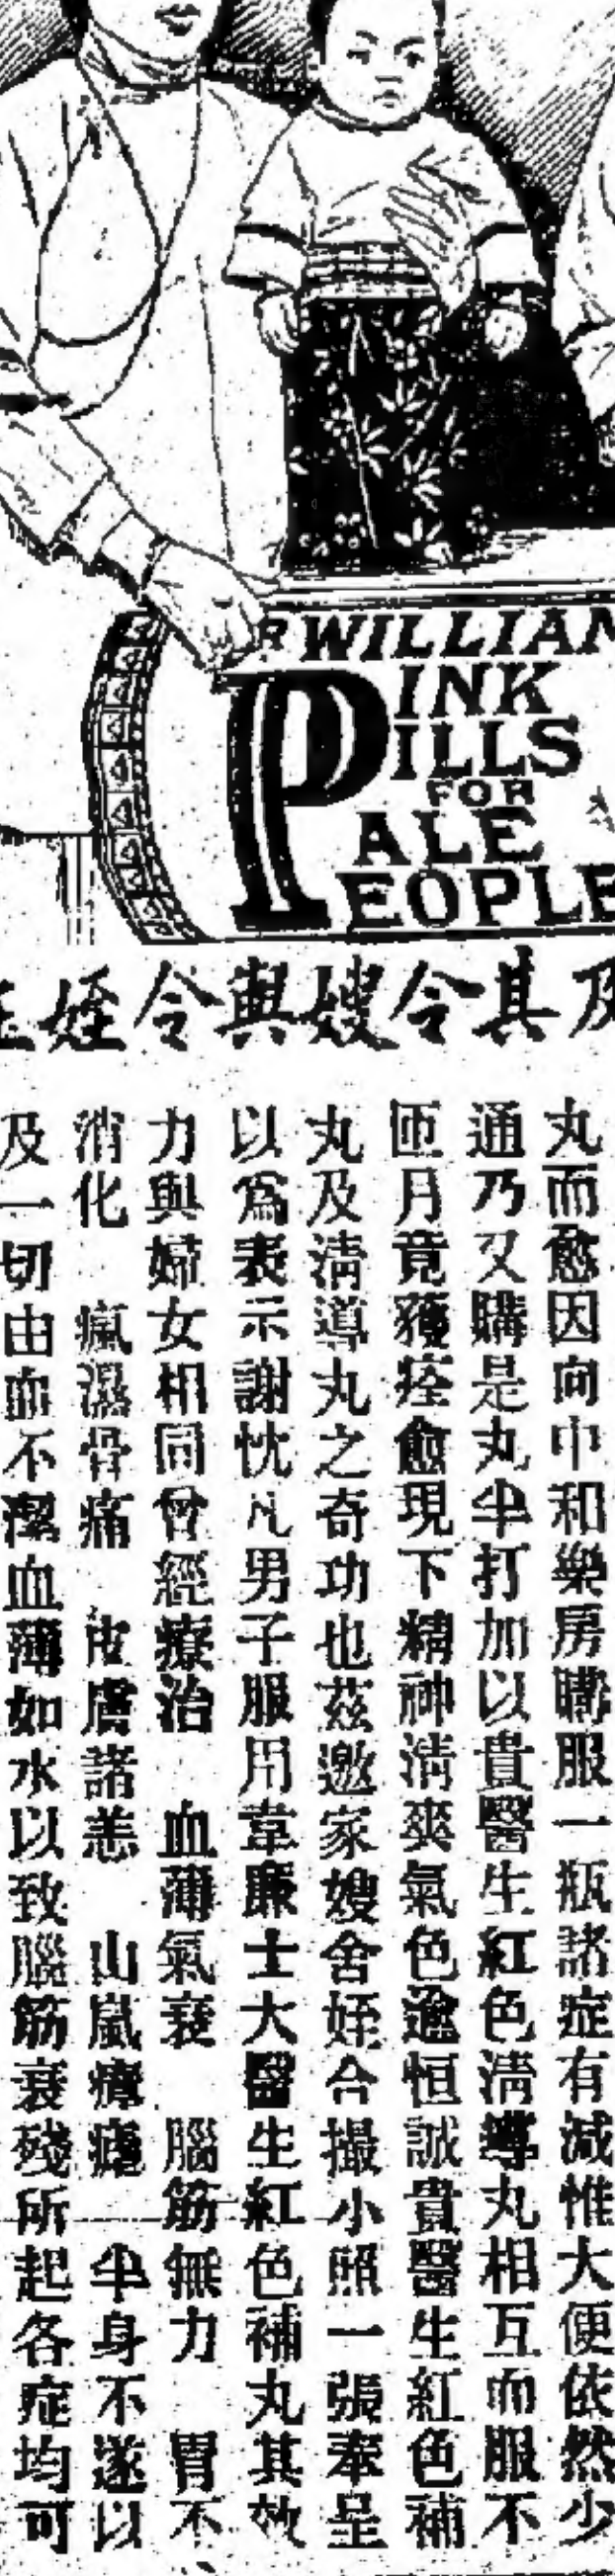 WILLIAM
PINK
PILLS
FOR
PALE
PEOPLE
其令嫂與令姪
丸而愈因向中和藥房購服一瓶諸症有減惟大便依然少
通乃又購是丸半打加以貴醫生紅色清導丸相互而服不
匝月竟獲痊愈現下精神清爽氣色逾恒誠貴醫生紅色補
丸及清導丸之奇功也茲邀家嫂舍姪合撮小照一張奉呈
以爲表示謝忱凡男子服用韋廉士大醫生紅色補丸其效
力與婦女相同曾經療治 血薄氣衰 腦筋無力 胃不
消化 瘋濕骨痛 皮膚諸恙 山嵐瘴瘧 半身不遂以
及一切由血不潔血薄如水以致腦筋衰殘所起各症均可